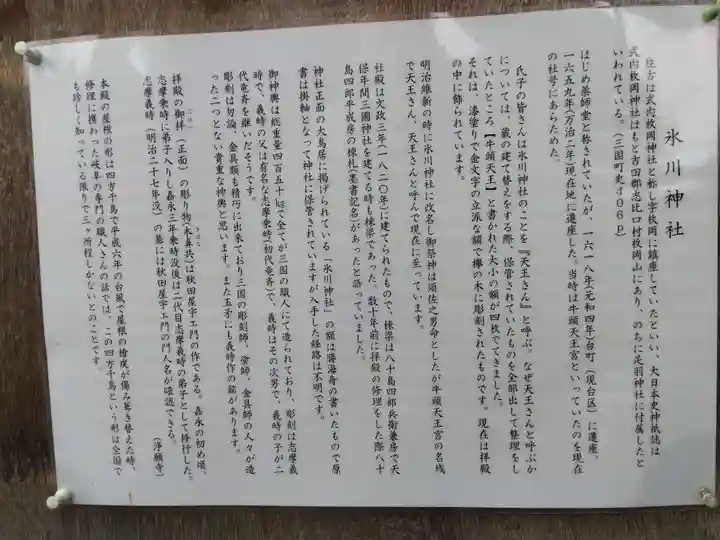 氷川神社
往古は式内枚岡神社と称し字枚岡に鎮座していたといい、大日本史神祇誌は
式内枚岡神社はもと吉田郡志比口村枚岡山にあり、のちに足羽神社に付属したと
いわれている。（三国町史４０６Ｐ）
はじめ薬師堂と称されていたが、一六一八年（元和四年）台町（現台区）に遷座、
一六五九年（万治二年）現在地に遷座した。当時は牛頭天王宮といっていたのを現在
の社号にあらためた。
氏子の皆さんは氷川神社のことを『天王さん』と呼ぶ。なぜ天王さんと呼ぶか
については、蔵の建て替えをする際、保管されていたものを全部出して整理をし
ていたところ【牛頭天王】と書かれた大小の額が四枚でてきました。
それは、漆塗りで金文字の立派な額で欅の木に彫刻されたものです。現在は拝殿
の中に飾られています。
明治維新の時に氷川神社に改名し御祭神は須佐之男命としたが牛頭天王宮の名残
で天王さん、天王さんと呼んで現在に至っています。
社殿は文政三年（一八二〇年）に建てられたもので、棟梁は八十島四郎兵衛兼房で天
保年間三國神社を建てる時も棟梁であった。数十年前に拝殿の修理をした際八十
島四郎平成房の棟札（墨書記名）があったと語っていました。
神社正面の大鳥居に掲げられている「氷川神社」の額は勝海舟の書いたもので原
書は掛軸となって神社に保管されていますが入手した経路は不明です。
御神輿は総重量四百五十㎏で全てが三国の職人にて造られており、彫刻は志摩義
時で、義時の父は有名な志摩乗時（初代竜斉）で、義時はその次男で、義時の子が二
代竜斉を継いだそうです。
彫刻は勿論、金具類も精巧に出来ており三国の彫刻師、塗師、金具師の人々が造
った二つとない貴重な神輿と思います。また玉矛にも義時作の銘があります。
拝殿の御拝（正面）の彫り物（木鼻共）は秋田屋宇ェ門の作である。嘉永の初め頃、
志摩乗時に弟子入りし嘉永三年乗時没後は二代目志摩義時の弟子として修行した。
志摩義時（明治二十七年没）の墓には秋田屋宇ェ門の門人名が確認できる。（浄願寺）
本殿の屋根の形は四方千鳥で平成六年の台風で屋根の檜皮が傷み葺き替えた時、
修理に携わった岐阜の専門の職人さんの話では、この四方千鳥という形は全国で
も珍しく知っている限りで三ヶ所程しかないとのことです。